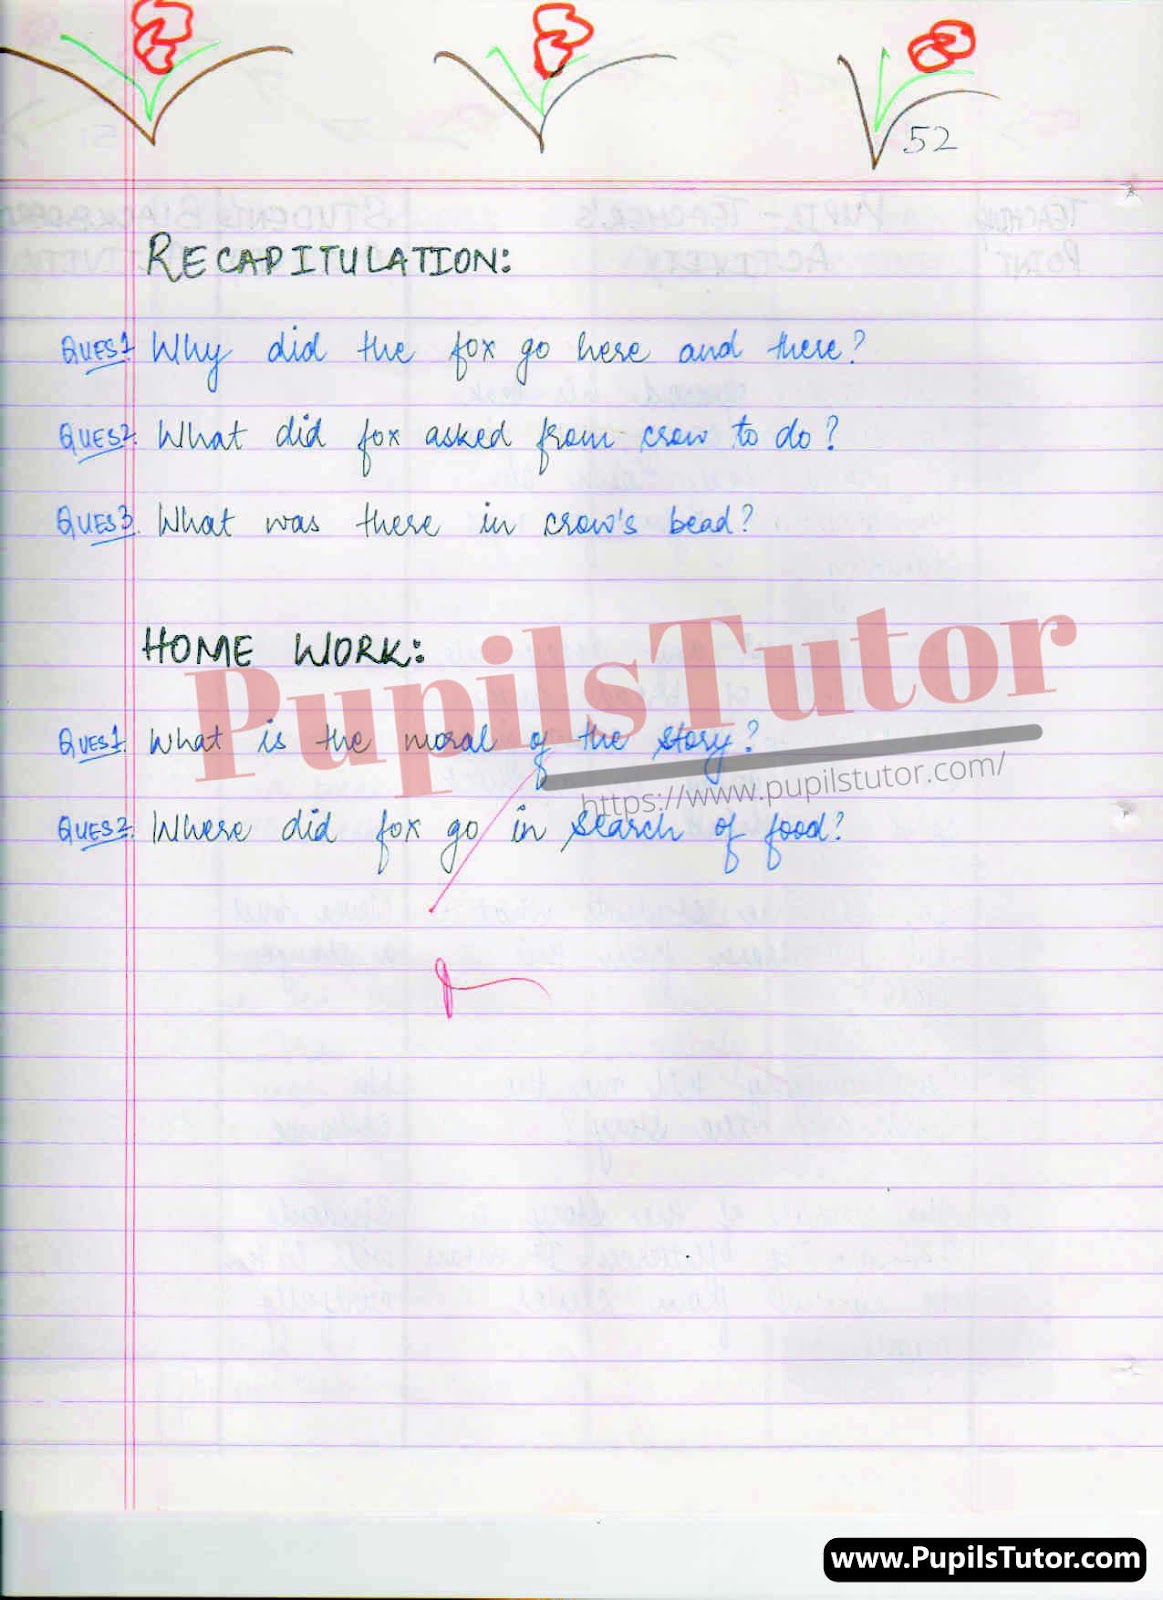 52
RECAPITULATION:
QUES1 Why did the fox go here and there?
QUES2. What did fox asked from crow to do?
QUES3. What was there in crow's bead?
HOME WORK:
PupilsTutor
QUES1. What is the moral of the story?
https://www.pupilstutor.com/
QUES2. Where did fox go in search of food?
www.PupilsTutor.com